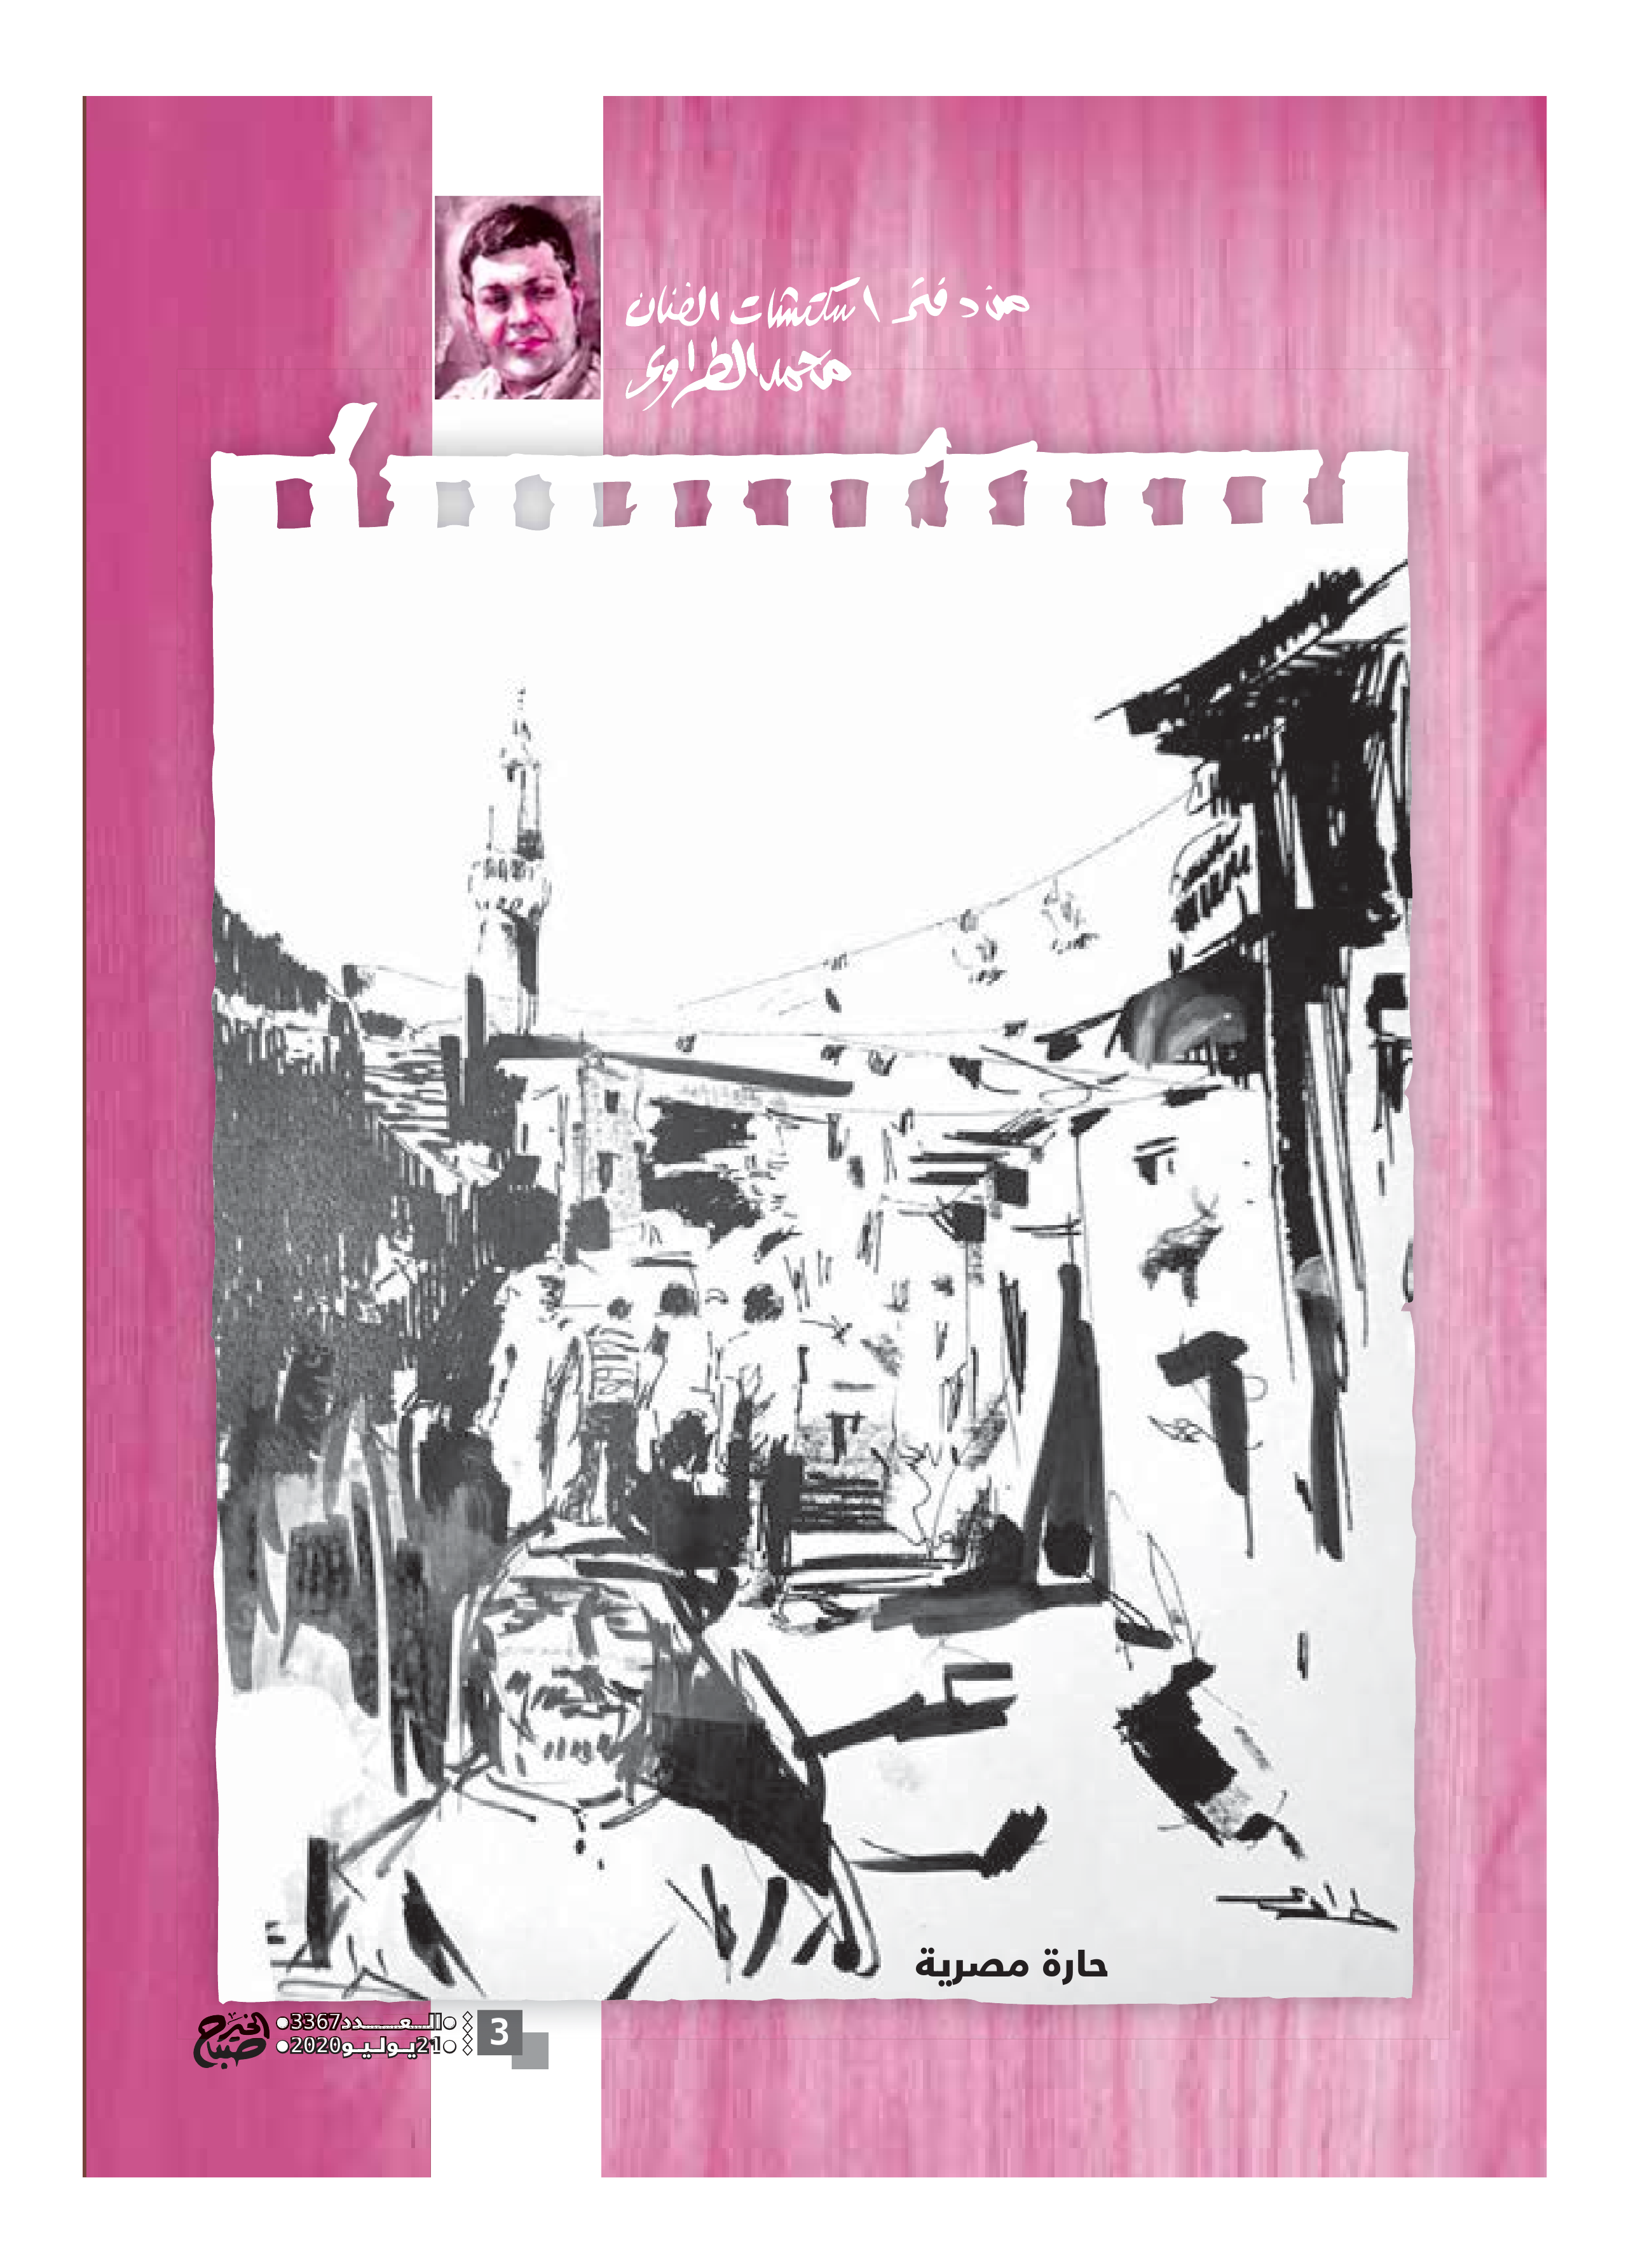 من دفتر اسكتشات الفنان
محمد الطراوى
حارة مصرية
3
العدد 3367
21 يوليو 2020
صباح الخير